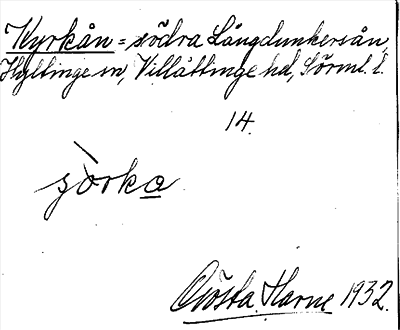 Kyrkån = södra Långdunkersån,
Hyltinge sn, Villåttinge hd, Sörml. l.
14.
sörka
Gösta Harne 1932.